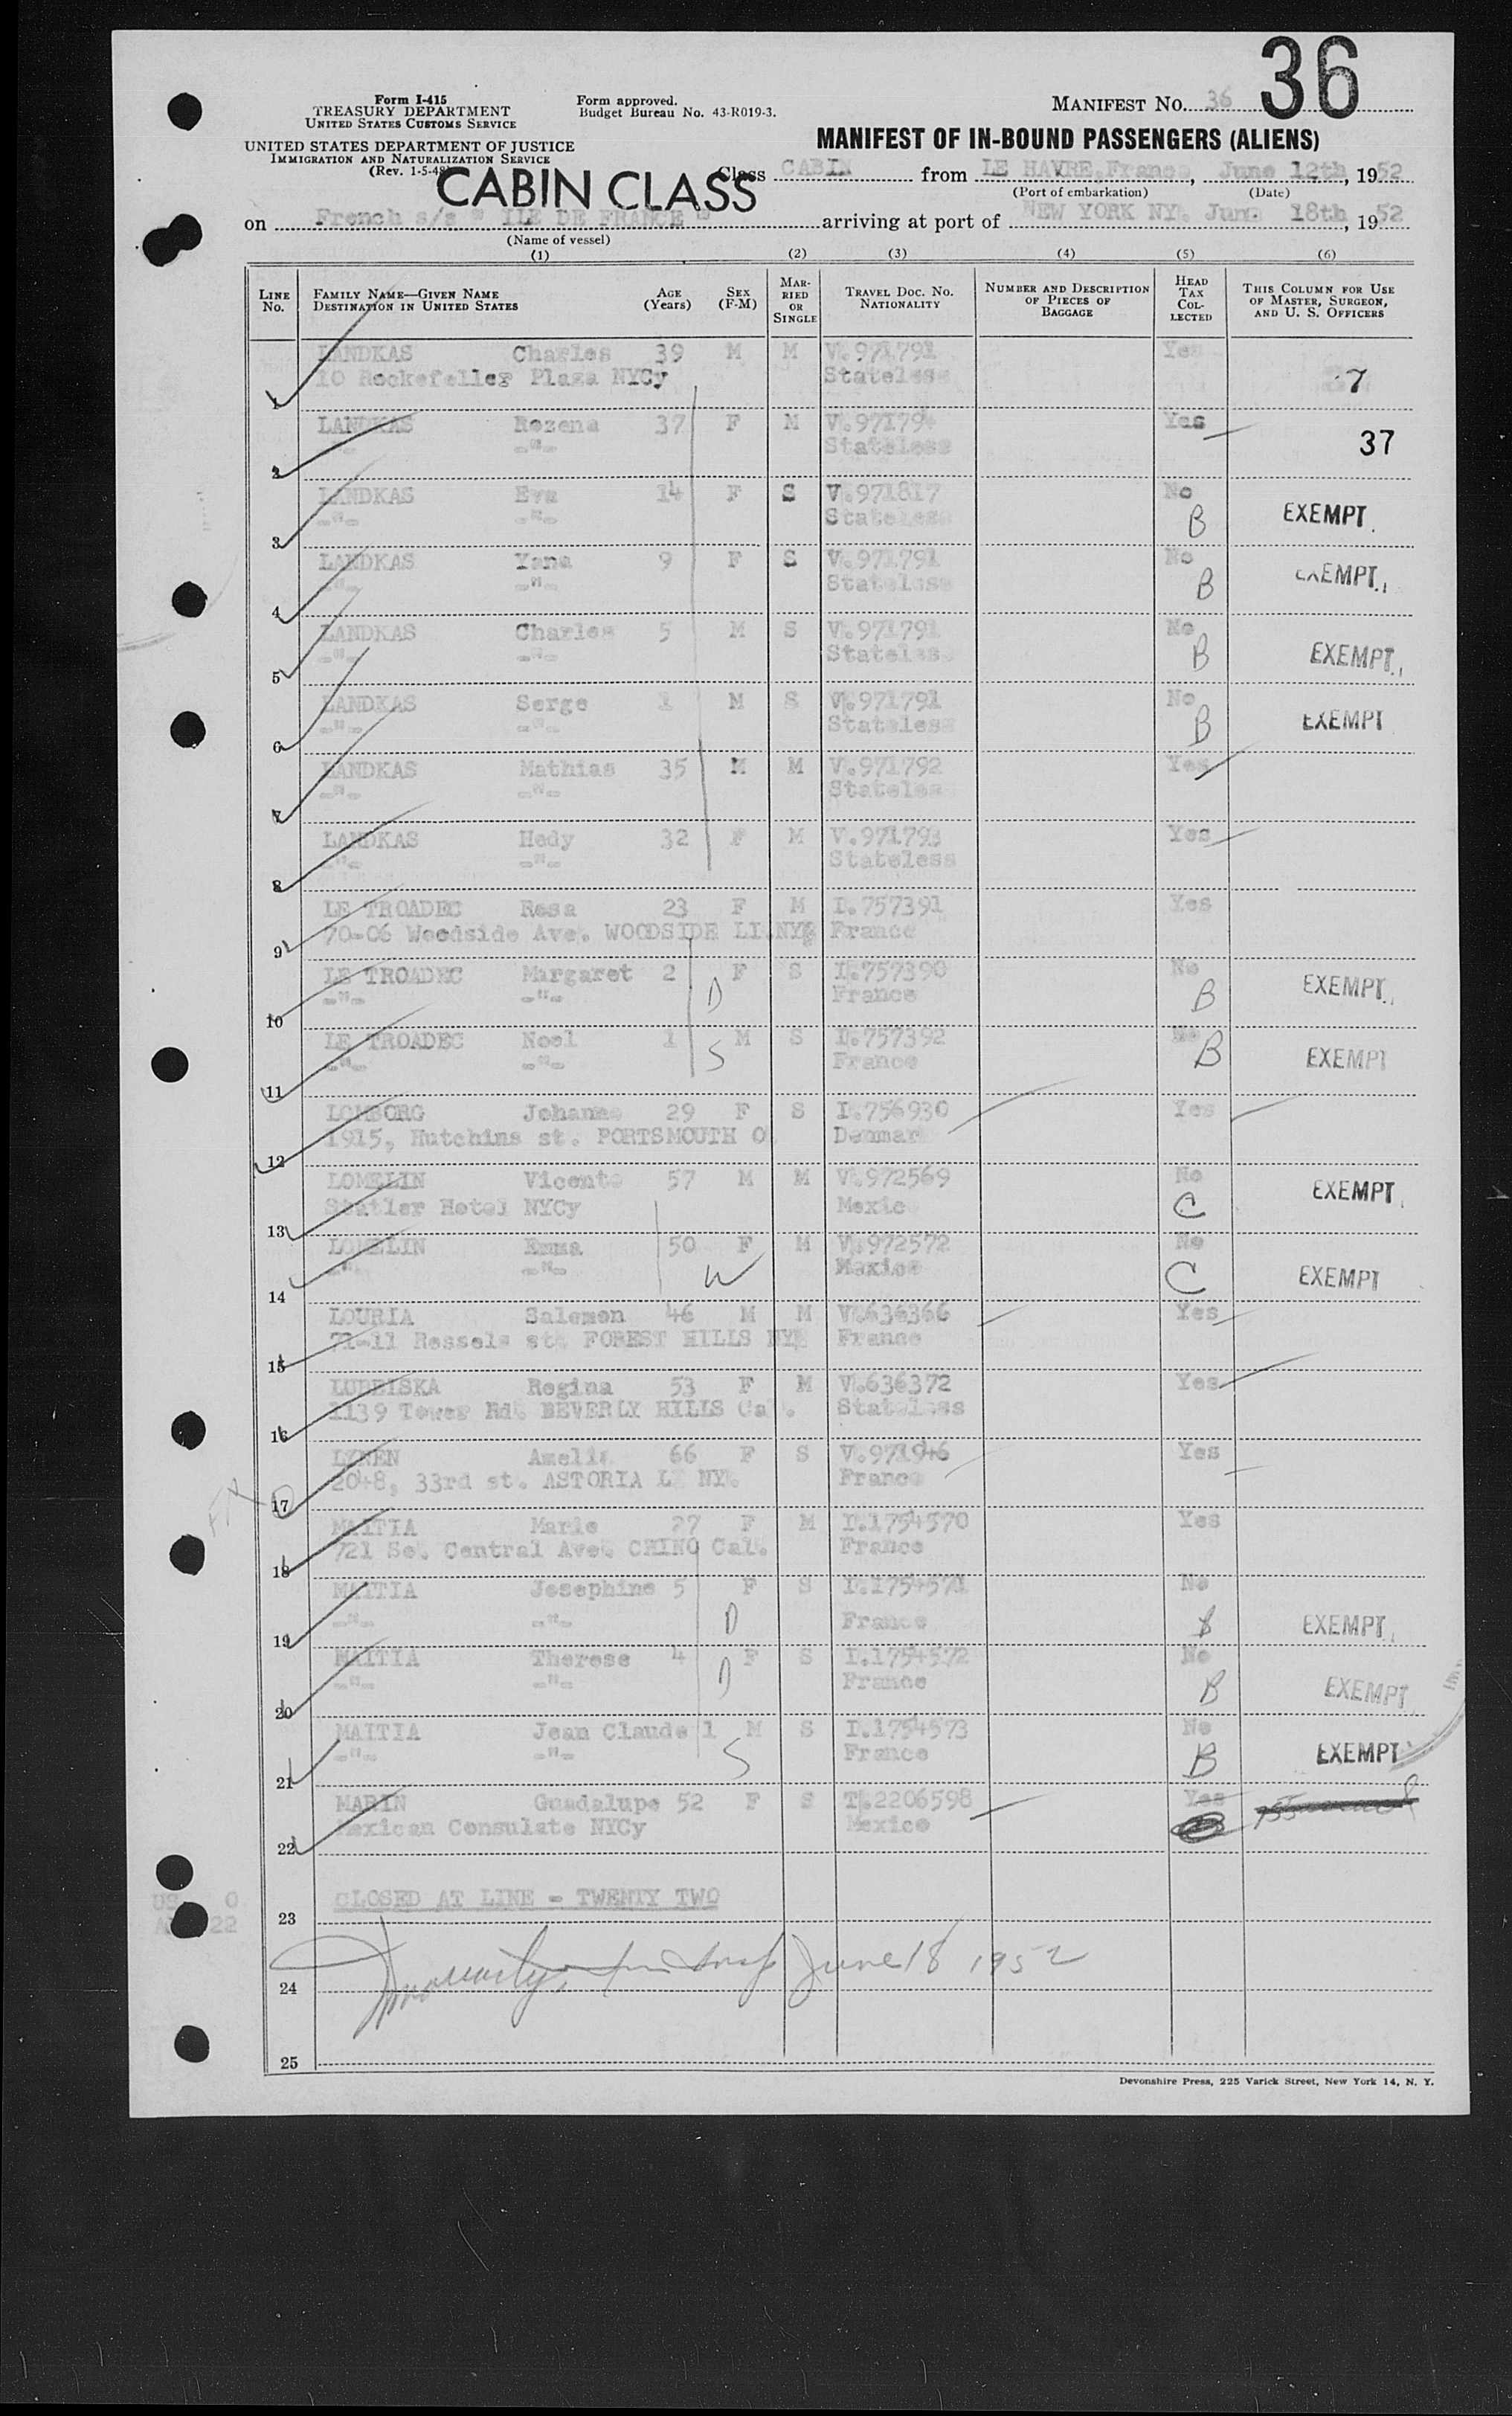 36
Form I-415
TREASURY DEPARTMENT
UNITED STATES CUSTOMS SERVICE
UNITED STATES DEPARTMENT OF JUSTICE
IMMIGRATION AND NATURALIZATION SERVICE
(Rev. 1-5-48)
Form approved.
Budget Bureau No. 43-R019-3.
MANIFEST NO. 36
MANIFEST OF IN-BOUND PASSENGERS (ALIENS)
CABIN CLASS
Class CABIN from LE HAVRE, France, June 12th, 1952
(Port of embarkation) (Date)
on French s/s " ILE DE FRANCE " arriving at port of NEW YORK NY. June 18th, 1952
(Name of vessel)
(1) (2) (3) (4) (5) (6)
LINE No. FAMILY NAME—GIVEN NAME DESTINATION IN UNITED STATES AGE (Years) SEX (F-M) MARRIED OR SINGLE TRAVEL DOC. NO. NATIONALITY NUMBER AND DESCRIPTION OF PIECES OF BAGGAGE HEAD TAX COLLECTED THIS COLUMN FOR USE OF MASTER, SURGEON, AND U. S. OFFICERS
LANDKAS Charles 39 M M V.971791 Yes
1 10 Rockefeller Plaza NYCy Stateless 7
LANDKAS Rozena 37 F M V.971794 Yes
2 -"- -"- Stateless 37
LANDKAS Eva 14 F S V.971817 No
3 -"- -"- Stateless B EXEMPT
LANDKAS Yana 9 F S V.971791 No
4 -"- -"- Stateless B EXEMPT
LANDKAS Charles 5 M S V.971791 No
5 -"- -"- Stateless B EXEMPT
LANDKAS Serge 1 M S V.971791 No
6 -"- -"- Stateless B EXEMPT
LANDKAS Mathias 35 M M V.971792 Yes
7 -"- -"- Stateless
LANDKAS Hedy 32 F M V.971793 Yes
8 -"- -"- Stateless
LE TROADEC Rosa 23 F M I.757391 Yes
9 70-06 Woodside Ave. WOODSIDE LI.NY. France
LE TROADEC Margaret 2 F S I.757390 No
10 -"- -"- D France B EXEMPT
LE TROADEC Noel 1 M S I.757392 No
11 -"- -"- S France B EXEMPT
LOMBORG Johanne 29 F S I.756930 Yes
12 1915, Hutchins st. PORTSMOUTH O. Denmark
LOMELIN Vicente 57 M M V.972569 No
13 Statler Hotel NYCy Mexico C EXEMPT
LOMELIN Emma 50 F M V.972572 No
14 -"- -"- W Mexico C EXEMPT
LOURIA Salomon 46 M M V.636366 Yes
15 71-11 Ressels st. FOREST HILLS NY. France
LUBBISKA Regina 53 F M V.636372 Yes
16 1139 Tower Rd. BEVERLY HILLS Cal. Stateless
LYNEN Amelia 66 F S V.971946 Yes
17 2048, 33rd st. ASTORIA L NY. France
MAITIA Marie 27 F M I.1754570 Yes
18 721 So. Central Ave. CHINO Cal. France
MAITIA Josephine 5 F S I.1754571 No
19 -"- -"- D France B EXEMPT
MAITIA Therese 4 F S I.1754572 No
20 -"- -"- D France B EXEMPT
MAITIA Jean Claude 1 M S I.1754573 No
21 -"- -"- S France B EXEMPT
MARIN Guadalupe 52 F S T.2206598 Yes
22 Mexican Consulate NYCy Mexico
23 CLOSED AT LINE - TWENTY TWO
24 June 18 1952
25
Devonshire Press, 225 Varick Street, New York 14, N. Y.